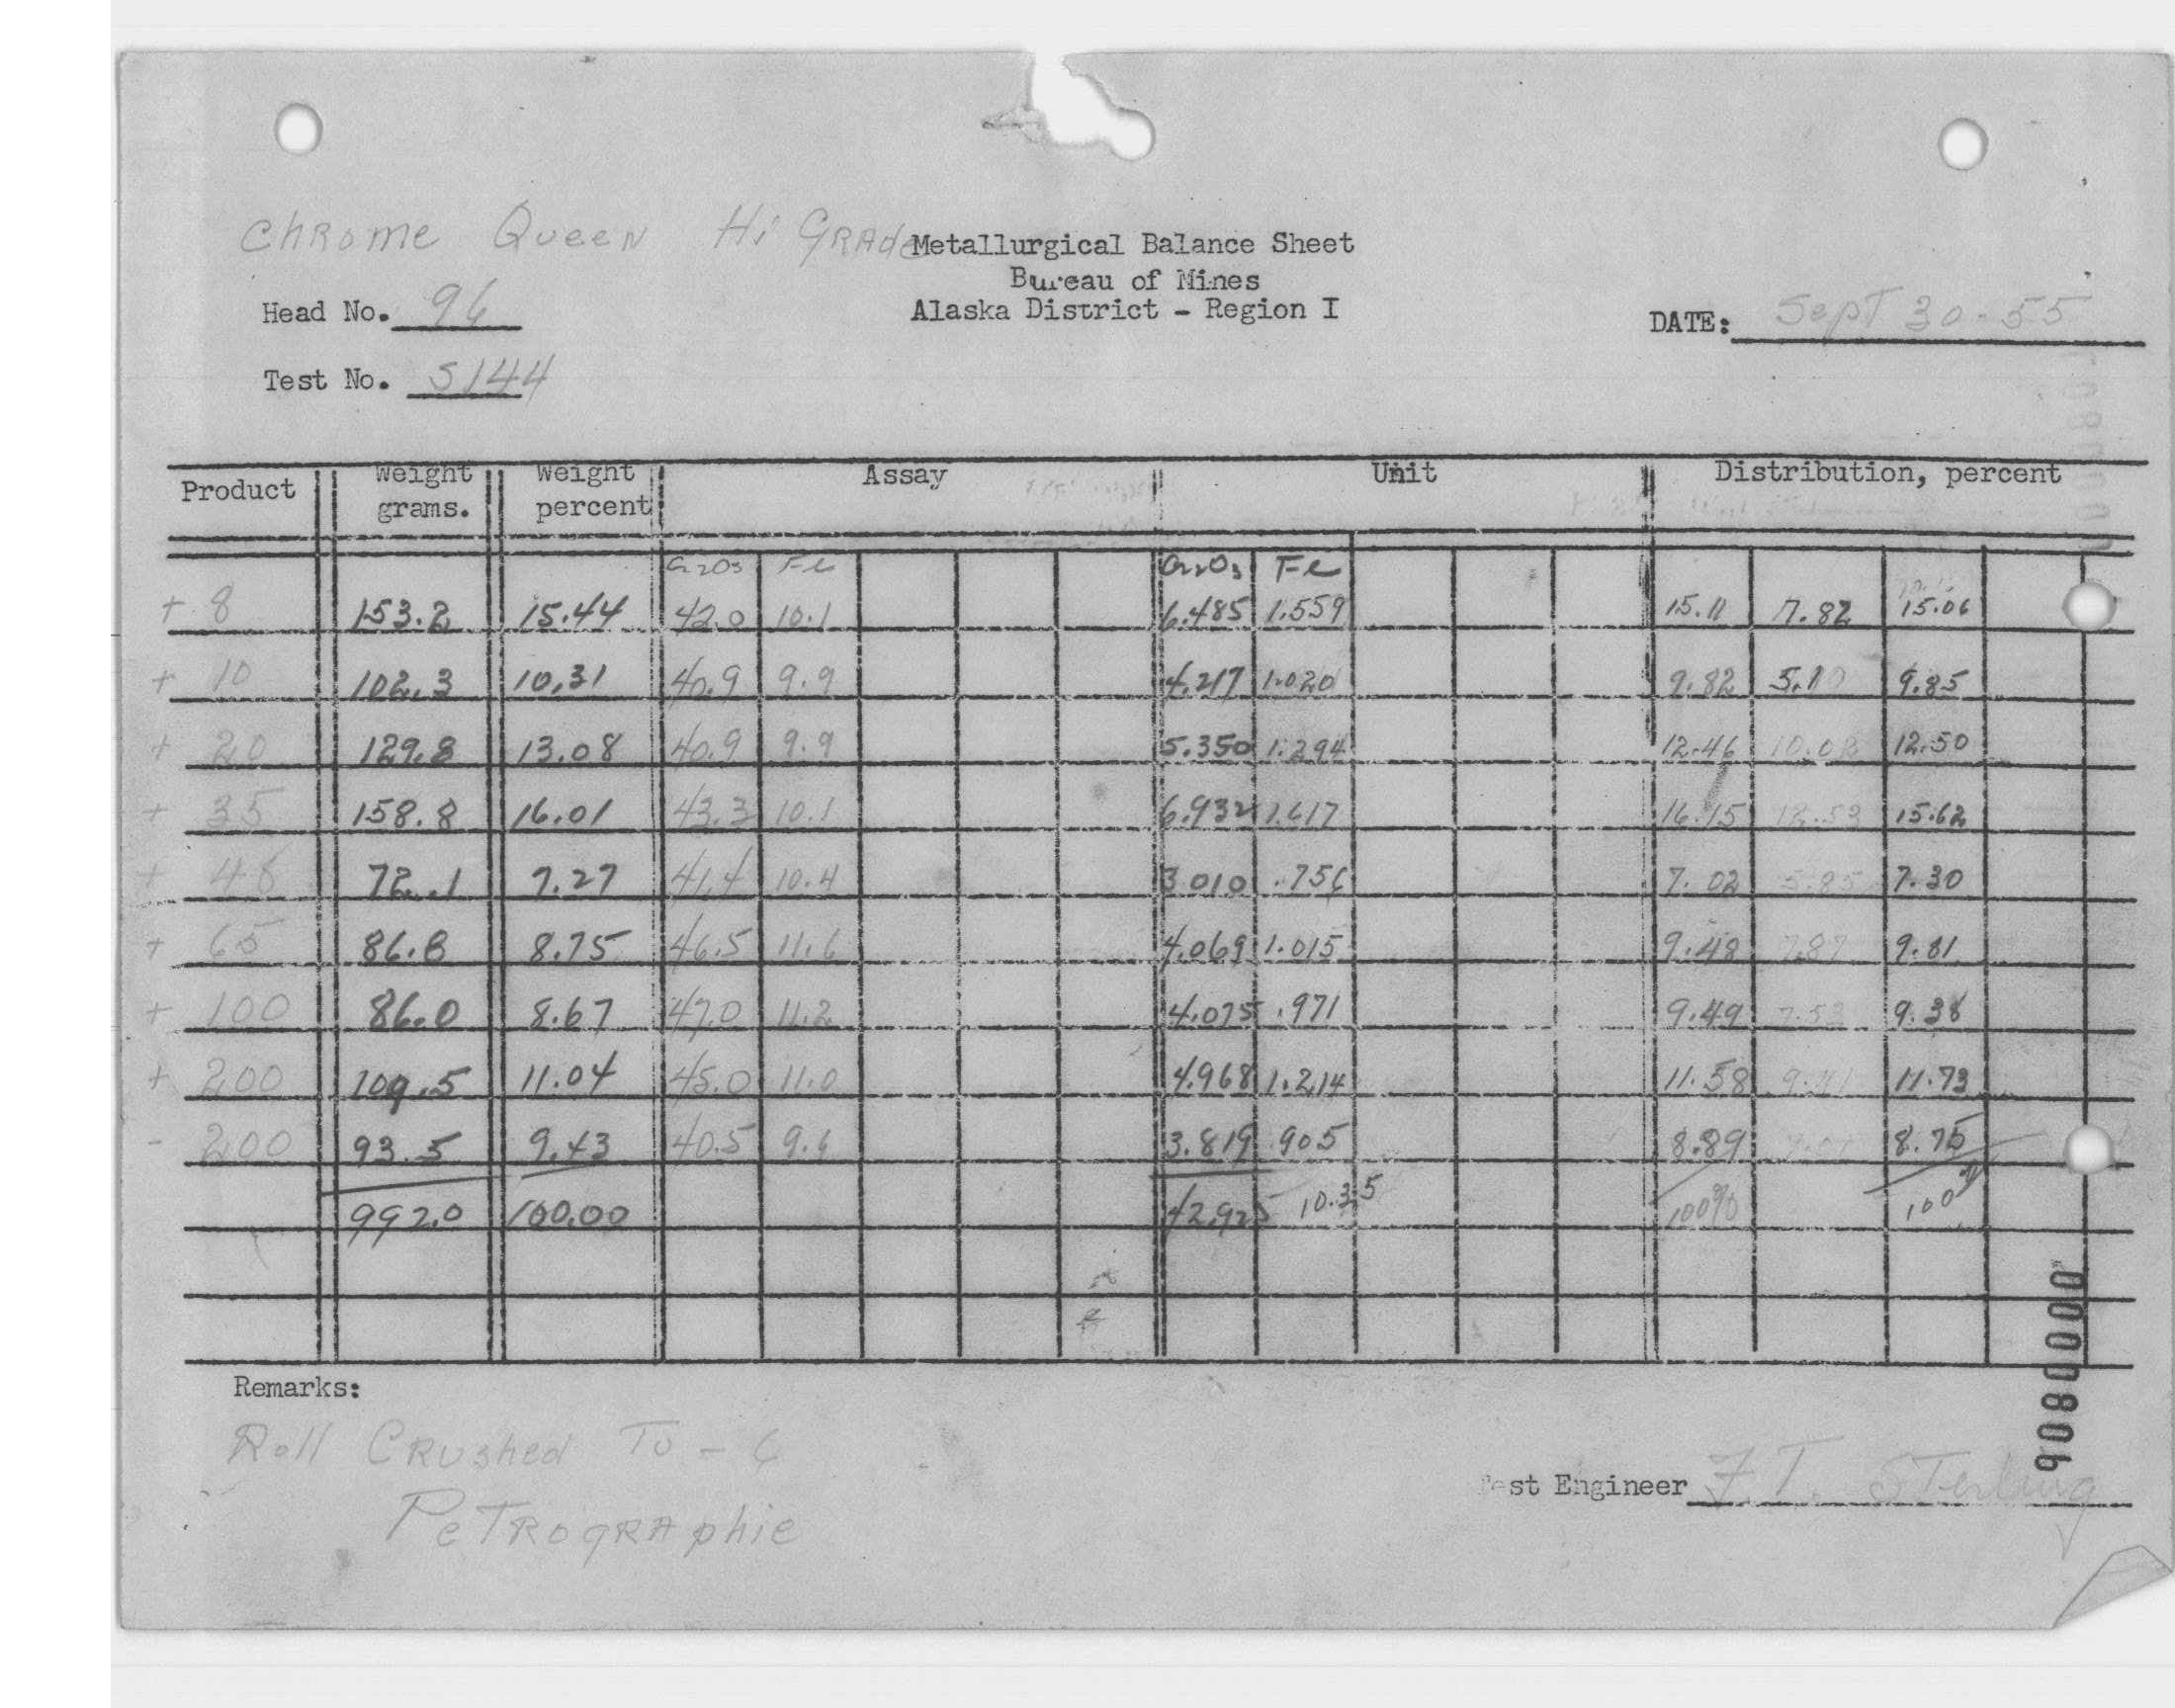 Chrome Queen Hi Grade
Metallurgical Balance Sheet
Bureau of Mines
Alaska District - Region I
Head No. 96
DATE: Sept 30-55
Test No. S144
Product Weight grams. Weight percent Assay Unit Distribution, percent
Cr2O3 Fe Cr2O3 Fe
+ 8 153.2 15.44 42.0 10.1 6.485 1.559 15.11 7.82 15.06
+ 10 102.3 10.31 40.9 9.9 4.217 1.020 9.82 5.10 9.85
+ 20 129.8 13.08 40.9 9.9 5.350 1.294 12.46 10.02 12.50
+ 35 158.8 16.01 43.3 10.1 6.932 1.617 16.15 12.53 15.62
+ 48 72.1 7.27 41.4 10.4 3.010 .756 7.02 5.85 7.30
+ 65 86.8 8.75 46.5 11.6 4.069 1.015 9.48 7.87 9.81
+ 100 86.0 8.67 47.0 11.2 4.075 .971 9.49 7.53 9.38
+ 200 109.5 11.04 45.0 11.0 4.968 1.214 11.58 11.73
- 200 93.5 9.43 40.5 9.6 3.819 .905 8.89 8.75
992.0 100.00 42.925 10.35 100% 100%
Remarks:
Roll Crushed To - 6
Petrographic
Test Engineer F.T. Sterling
9080000